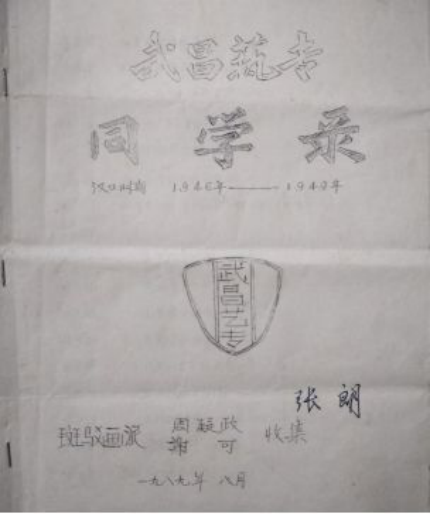 武昌艺专
同学录
汉口时期 1946年——1949年
武昌艺专
张朗
斑驳画派 周疑政 收集
谢可
一九八九年 八月